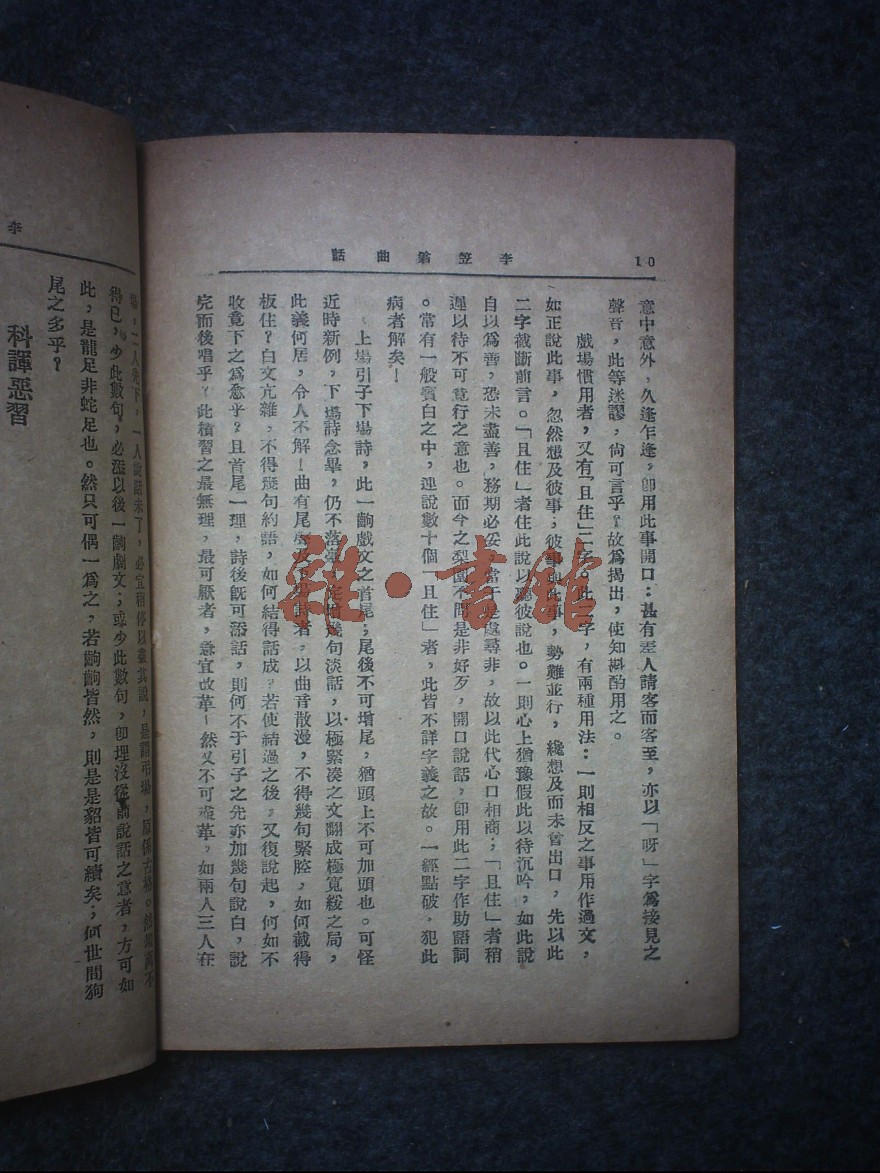 李笠翁曲話
10
意中意外，久逢乍逢，卽用此事開口：甚有差人請客而客至，亦以「呀」字爲接見之
聲音，此等迷謬，尙可言乎？故爲揭出，使知斟酌用之。
戲場慣用者，又有「且住」二字。此二字，有兩種用法：一則相反之事用作過文，
如正說此事，忽然想及彼事，彼事與此事，勢難並行，纔想及而未曾出口，先以此
二字截斷前言。「且住」者住此說以聽彼說也。一則心上猶豫假此以待沉吟，如此說
自以爲善，恐未盡善，務期必妥，當于是處尋非，故以此代心口相商；「且住」者稍
遲以待不可竟行之意也。而今之梨園不問是非好歹，開口說話，卽用此二字作助語詞
。常有一般賓白之中，連說數十個「且住」者，此皆不詳字義之故。一經點破，犯此
病者解矣！
上場引子下場詩，此一齣戲文之首尾；尾後不可增尾，猶頭上不可加頭也。可怪
近時新例，下場詩念畢，仍不落臺，定增幾句淡話，以極緊湊之文翻成極寬緩之局，
此義何居，令人不解！曲有尾聲及下場詩者，以曲音散漫，不得幾句緊腔，如何截得
板住？白文冗雜，不得幾句約語，如何結得話成？若使結過之後，又復說起，何如不
收竟下之爲愈乎？且首尾一理，詩後旣可添話，則何不于引子之先亦加幾句說白，說
完而後唱乎？此積習之最無理，最可厭者，急宜改革！然又不可盡革，如兩人三人在
李
場，二人先下，一人說話未了，必宜稍停以盡其說，是謂弔場，原係古格。然須萬不
得已，少此數句，必添以後一齣戲文；或少此數句，卽埋沒從前說話之意者，方可如
此，是龍足非蛇足也。然只可偶一爲之，若齣齣皆然，則是是貂皆可續矣，何世間狗
尾之多乎？
科諢惡習
雜·書館